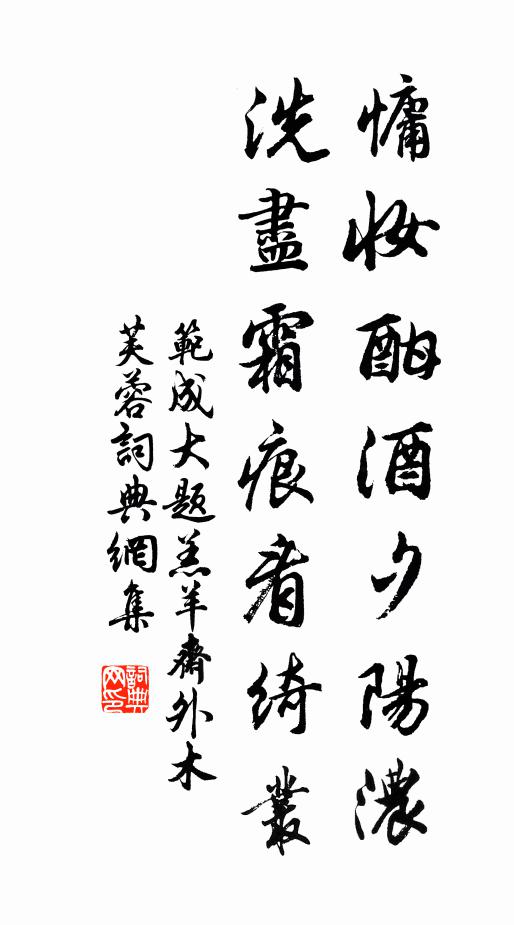 慵妝酣酒夕陽濃
洗盡霜痕看綺叢
範成大題羔羊齋外木
芙蓉詞典網集
詞典網印